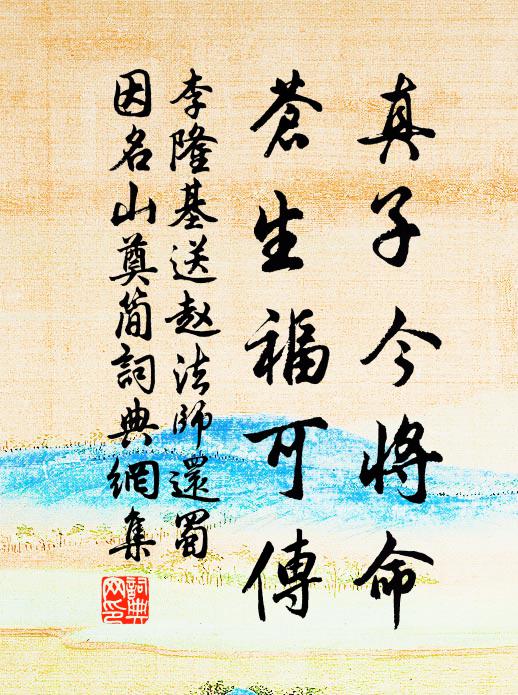 真子今将命
蒼生福可傳
李隆基送赵法師還蜀
因名山奠简詞典網集
詞典網印